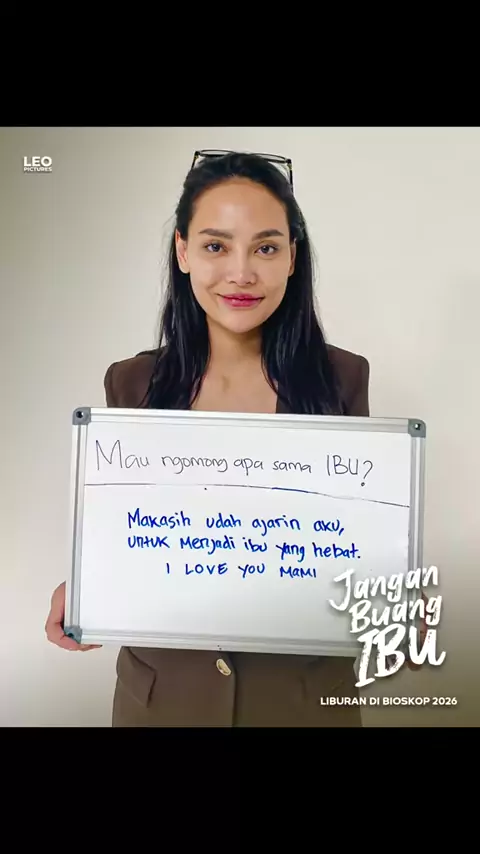 LEO
PICTURES
Mau ngomong apa sama IBU?
Makasih udah ajarin aku,
untuk menjadi ibu yang hebat.
I LOVE YOU MAMI
Jangan
Buang
IBU
LIBURAN DI BIOSKOP 2026